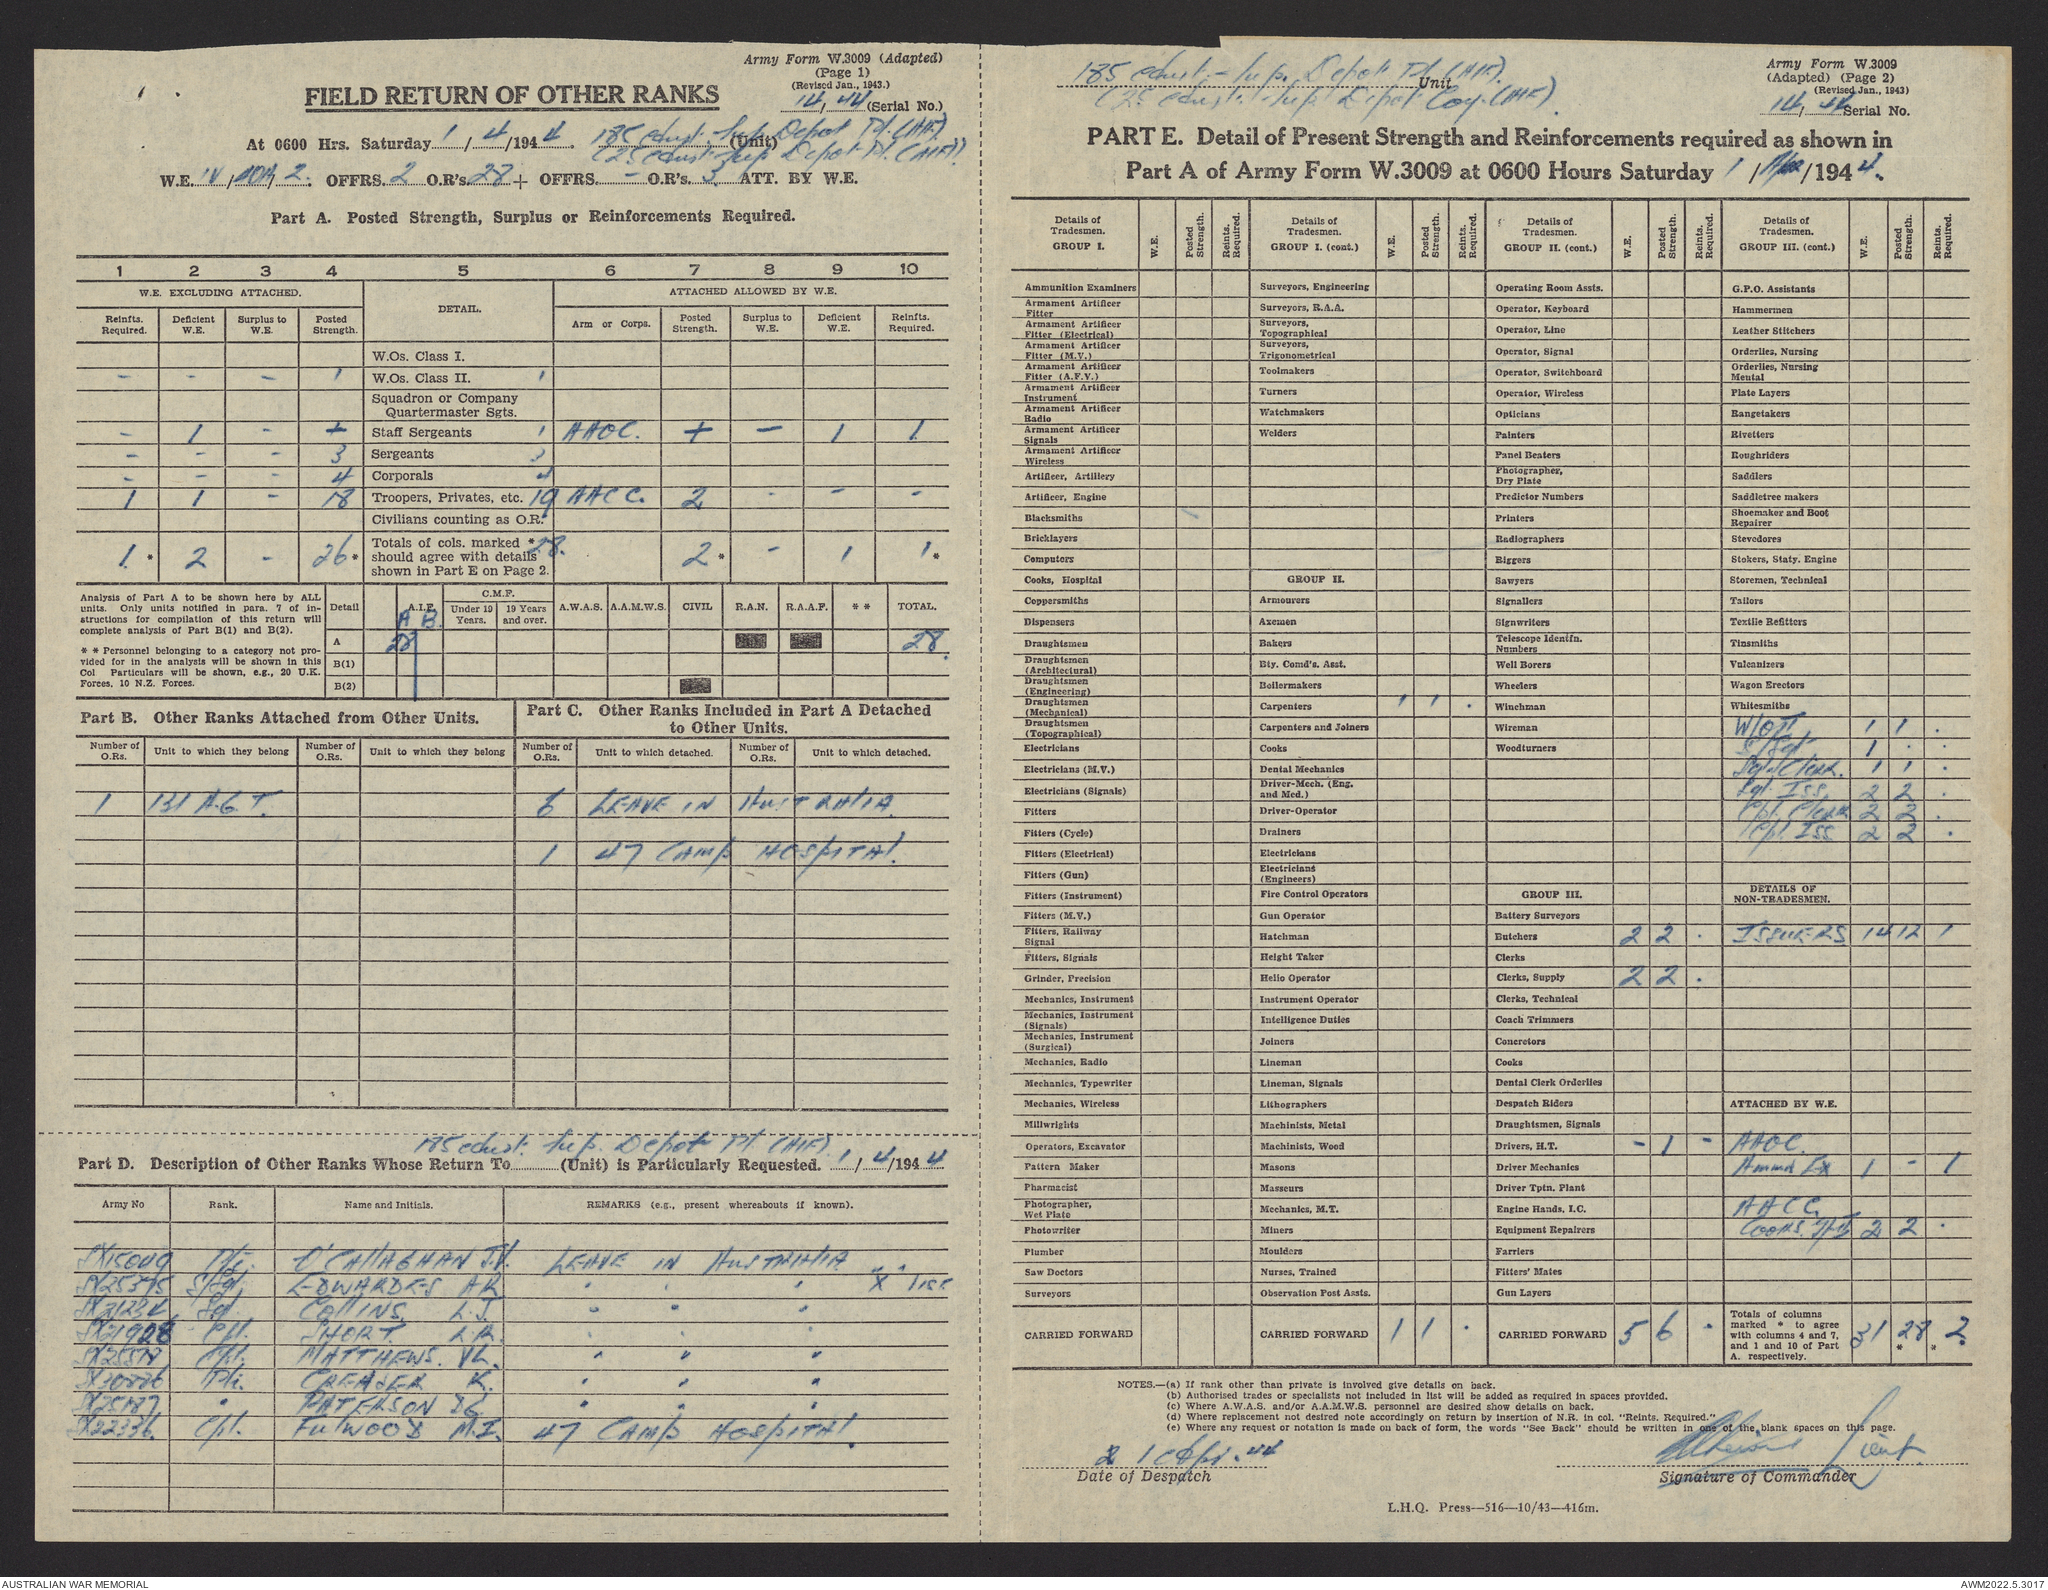 Army Form W.3009 (Adapted)
(Page 1)
(Revised Jan., 1943.)
14, 44 (Serial No.)
FIELD RETURN OF OTHER RANKS
At 0600 Hrs. Saturday 1 / 4 /1944. 185 Sup. Depot Pl. (AIF) (Unit)
Sup Depot Pl (AIF)
W.E. IV 2. OFFRS. 2 O.R's. 28 + OFFRS. - O.R's. 3 ATT. BY W.E.
Part A. Posted Strength, Surplus or Reinforcements Required.
1 2 3 4 5 6 7 8 9 10
W.E. EXCLUDING ATTACHED. DETAIL. ATTACHED ALLOWED BY W.E.
Reinfts. Required. Deficient W.E. Surplus to W.E. Posted Strength. Arm or Corps. Posted Strength. Surplus to W.E. Deficient W.E. Reinfts. Required.
W.Os. Class I.
- - - 1 W.Os. Class II. 1
Squadron or Company Quartermaster Sgts.
- 1 - + Staff Sergeants 1 AAOC. + - 1 1
- - - 3 Sergeants 3
- - - 4 Corporals 4
1 1 - 18 Troopers, Privates, etc. 19 AACC. 2 - - -
Civilians counting as O.R.
1 * 2 - 26 * Totals of cols. marked * should agree with details shown in Part E on Page 2. 28. 2 * - 1 1 *
Analysis of Part A to be shown here by ALL units. Only units notified in para. 7 of instructions for compilation of this return will complete analysis of Part B(1) and B(2).
* * Personnel belonging to a category not provided for in the analysis will be shown in this Col Particulars will be shown, e.g., 20 U.K. Forces, 10 N.Z. Forces.
Detail A.I.F. A B. C.M.F. Under 19 Years. 19 Years and over. A.W.A.S. A.A.M.W.S. CIVIL R.A.N. R.A.A.F. * * TOTAL.
A 28 28.
B(1)
B(2)
Part B. Other Ranks Attached from Other Units.
Part C. Other Ranks Included in Part A Detached to Other Units.
Number of O.Rs. Unit to which they belong Number of O.Rs. Unit to which they belong Number of O.Rs. Unit to which detached. Number of O.Rs. Unit to which detached.
1 131 A.G.T. 6 LEAVE IN AUSTRALIA
1 47 CAMP HOSPITAL.
Sup. Depot Pl. (AIF)
Part D. Description of Other Ranks Whose Return To (Unit) is Particularly Requested. 1 / 4 /1944
Army No Rank. Name and Initials. REMARKS (e.g., present whereabouts if known).
Pte. O'CALLAGHAN J.V. LEAVE IN AUSTRALIA
S/Sgt. EDWARDES A R " " " X
Sgt. COLLINS, L.J. " " "
Cpl. SHORT. L.R. " " "
Cpl. MATTHEWS. V L. " " "
Pte. K. " " "
" PATERSON " " "
SX22336. Cpl. FULWOOD M.I. 47 CAMP HOSPITAL.
185 Sup. Depot Pl (AIF). Unit
Sup Depot Coy. (AIF)
Army Form W.3009
(Adapted) (Page 2)
(Revised Jan., 1943)
14, 44 Serial No.
PART E. Detail of Present Strength and Reinforcements required as shown in
Part A of Army Form W.3009 at 0600 Hours Saturday 1 / Apr /1944.
Details of Tradesmen. GROUP I. W.E. Posted Strength. Reints. Required.
Ammunition Examiners
Armament Artificer Fitter
Armament Artificer Fitter (Electrical)
Armament Artificer Fitter (M.V.)
Armament Artificer Fitter (A.F.V.)
Armament Artificer Instrument
Armament Artificer Radio
Armament Artificer Signals
Armament Artificer Wireless
Artificer, Artillery
Artificer, Engine
Blacksmiths
Bricklayers
Computors
Cooks, Hospital
Coppersmiths
Dispensers
Draughtsmen
Draughtsmen (Architectural)
Draughtsmen (Engineering)
Draughtsmen (Mechanical)
Draughtsmen (Topographical)
Electricians
Electricians (M.V.)
Electricians (Signals)
Fitters
Fitters (Cycle)
Fitters (Electrical)
Fitters (Gun)
Fitters (Instrument)
Fitters (M.V.)
Fitters, Railway Signal
Fitters, Signals
Grinder, Precision
Mechanics, Instrument
Mechanics, Instrument (Signals)
Mechanics, Instrument (Surgical)
Mechanics, Radio
Mechanics, Typewriter
Mechanics, Wireless
Millwrights
Operators, Excavator
Pattern Maker
Pharmacist
Photographer, Wet Plate
Photowriter
Plumber
Saw Doctors
Surveyors
CARRIED FORWARD
Details of Tradesmen. GROUP I. (cont.) W.E. Posted Strength. Reints. Required.
Surveyors, Engineering
Surveyors, R.A.A.
Surveyors, Topographical
Surveyors, Trigonometrical
Toolmakers
Turners
Watchmakers
Welders
GROUP II.
Armourers
Axemen
Bakers
Bty. Comd's. Asst.
Boilermakers
Carpenters 1 1 .
Carpenters and Joiners
Cooks
Dental Mechanics
Driver-Mech. (Eng. and Med.)
Driver-Operator
Drainers
Electricians
Electricians (Engineers)
Fire Control Operators
Gun Operator
Hatchman
Height Taker
Helio Operator
Instrument Operator
Intelligence Duties
Joiners
Lineman
Lineman, Signals
Lithographers
Machinists, Metal
Machinists, Wood
Masons
Masseurs
Mechanics, M.T.
Miners
Moulders
Nurses, Trained
Observation Post Assts.
CARRIED FORWARD 1 1 .
Details of Tradesmen. GROUP II. (cont.) W.E. Posted Strength. Reints. Required.
Operating Room Assts.
Operator, Keyboard
Operator, Line
Operator, Signal
Operator, Switchboard
Operator, Wireless
Opticians
Painters
Panel Beaters
Photographer, Dry Plate
Predictor Numbers
Printers
Radiographers
Riggers
Sawyers
Signallers
Signwriters
Telescope Identfn. Numbers
Well Borers
Wheelers
Winchman
Wireman
Woodturners
GROUP III.
Battery Surveyors
Butchers 2 2 .
Clerks
Clerks, Supply 2 2 .
Clerks, Technical
Coach Trimmers
Concretors
Cooks
Dental Clerk Orderlies
Despatch Riders
Draughtsmen, Signals
Drivers, H.T. - 1 -
Driver Mechanics
Driver Tptn. Plant
Engine Hands, I.C.
Equipment Repairers
Farriers
Fitters' Mates
Gun Layers
CARRIED FORWARD 5 6 .
Details of Tradesmen. GROUP III. (cont.) W.E. Posted Strength. Reints. Required.
G.P.O. Assistants
Hammermen
Leather Stitchers
Orderlies, Nursing
Orderlies, Nursing Mental
Plate Layers
Rangetakers
Rivetters
Roughriders
Saddlers
Saddletree makers
Shoemaker and Boot Repairer
Stevedores
Stokers, Staty. Engine
Storemen, Technical
Tailors
Textile Refitters
Tinsmiths
Vulcanizers
Wagon Erectors
Whitesmiths
W/O II 1 1 .
S/Sgt 1 . .
Sgt. Clerk. 1 1 .
Sgt. Iss. 2 2 .
Cpl. Clerk 2 2 .
Cpl. Iss 2 2 .
DETAILS OF NON-TRADESMEN.
ISSUERS 14 12 1
ATTACHED BY W.E.
AAOC.
Ammn Ex 1 - 1
AACC.
Cooks. 2 2 .
Totals of columns marked * to agree with columns 4 and 7, and 1 and 10 of Part A. respectively. 31 28 * 2 *
NOTES.—(a) If rank other than private is involved give details on back.
(b) Authorised trades or specialists not included in list will be added as required in spaces provided.
(c) Where A.W.A.S. and/or A.A.M.W.S. personnel are desired show details on back.
(d) Where replacement not desired note accordingly on return by insertion of N.R. in col. "Reints. Required."
(e) Where any request or notation is made on back of form, the words "See Back" should be written in one of the blank spaces on this page.
1 Apr. 44
Date of Despatch
Lieut.
Signature of Commander
L.H.Q. Press—516—10/43—416m.
AUSTRALIAN WAR MEMORIAL
AWM2022.5.3017